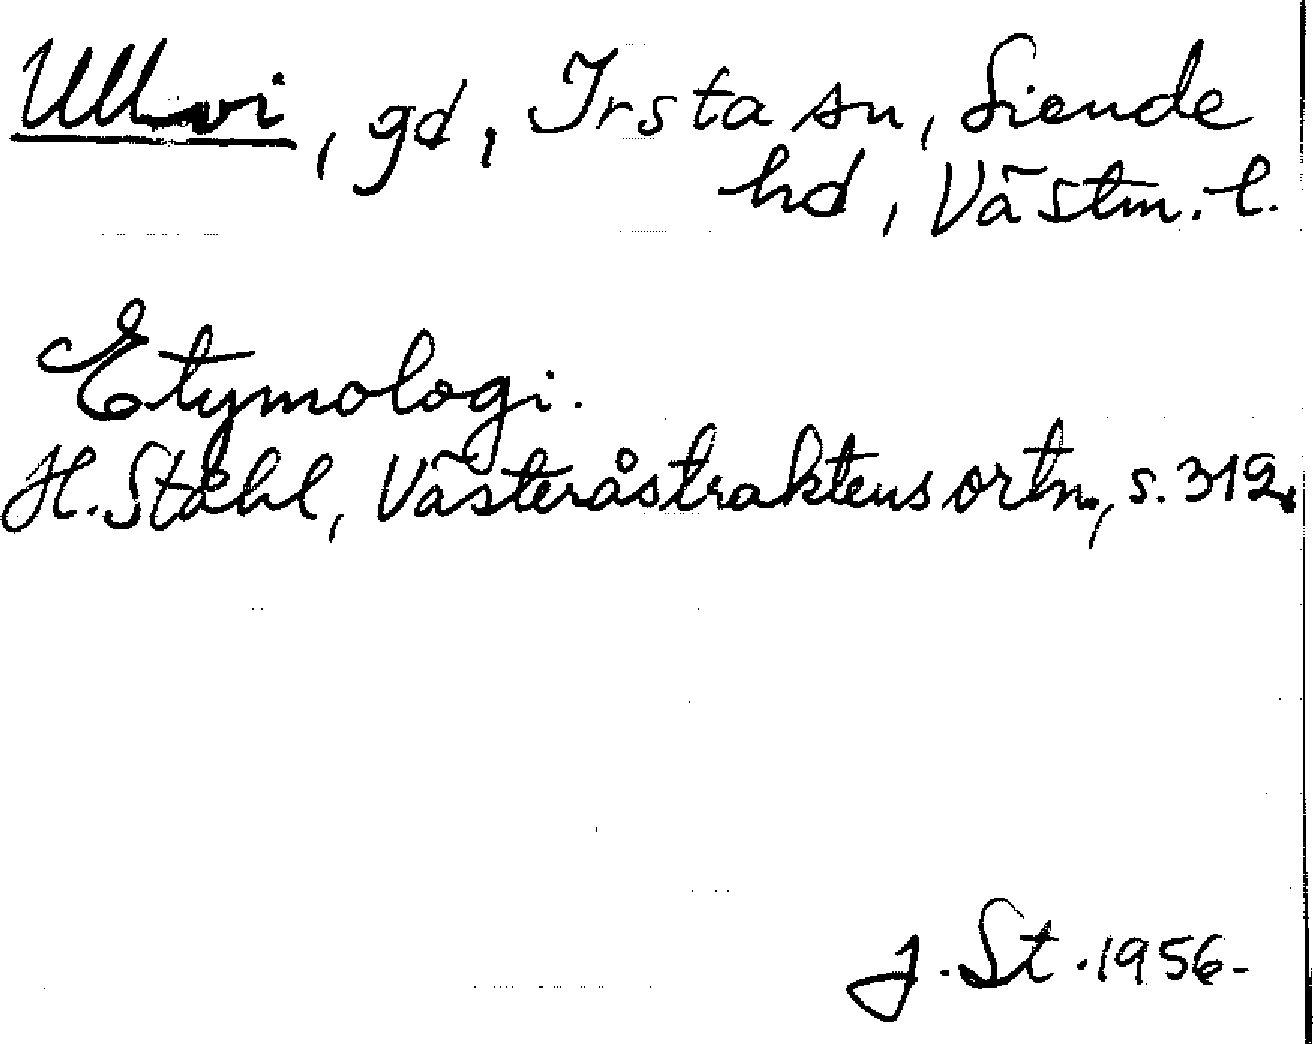 Ullvi, gd, Irsta sn, Siende
hd, Västm. l.
Etymologi.
H. Ståhl, Västeråstraktens ortn., s. 312.
J. St. 1956.